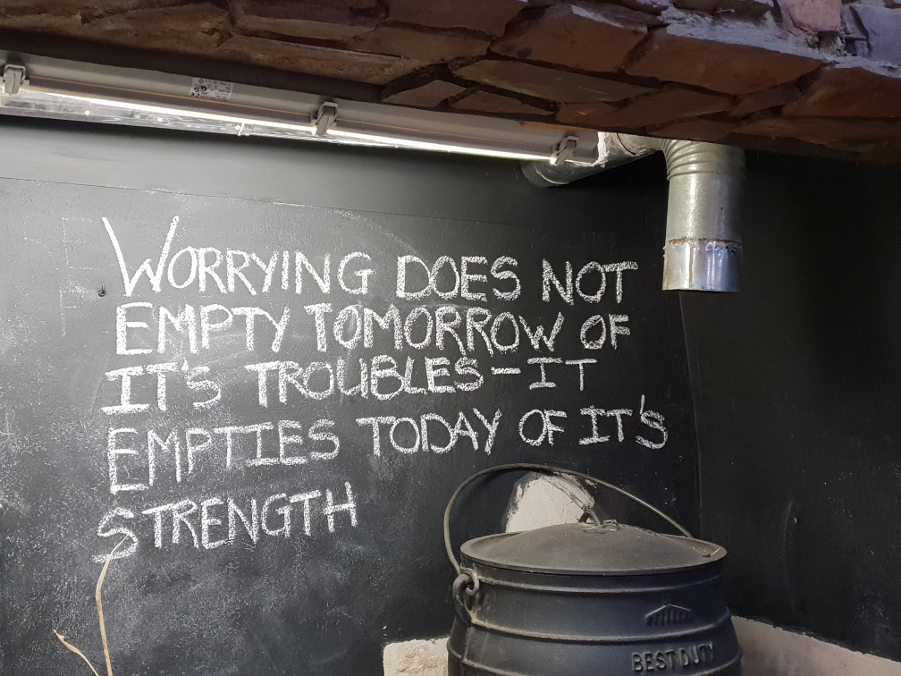 WORRYING DOES NOT
EMPTY TOMORROW OF
IT'S TROUBLES-IT
EMPTIES TODAY OF IT'S
STRENGTH
BEST DUTY